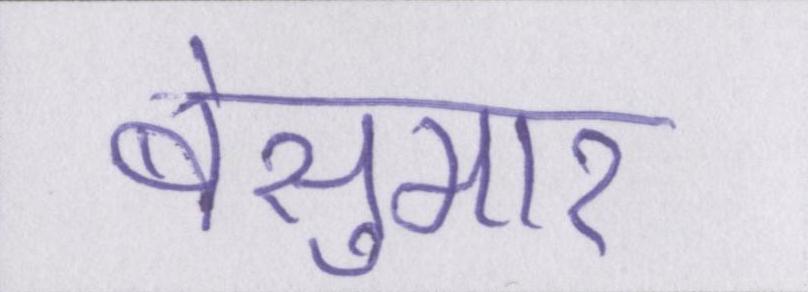 बेसुमार